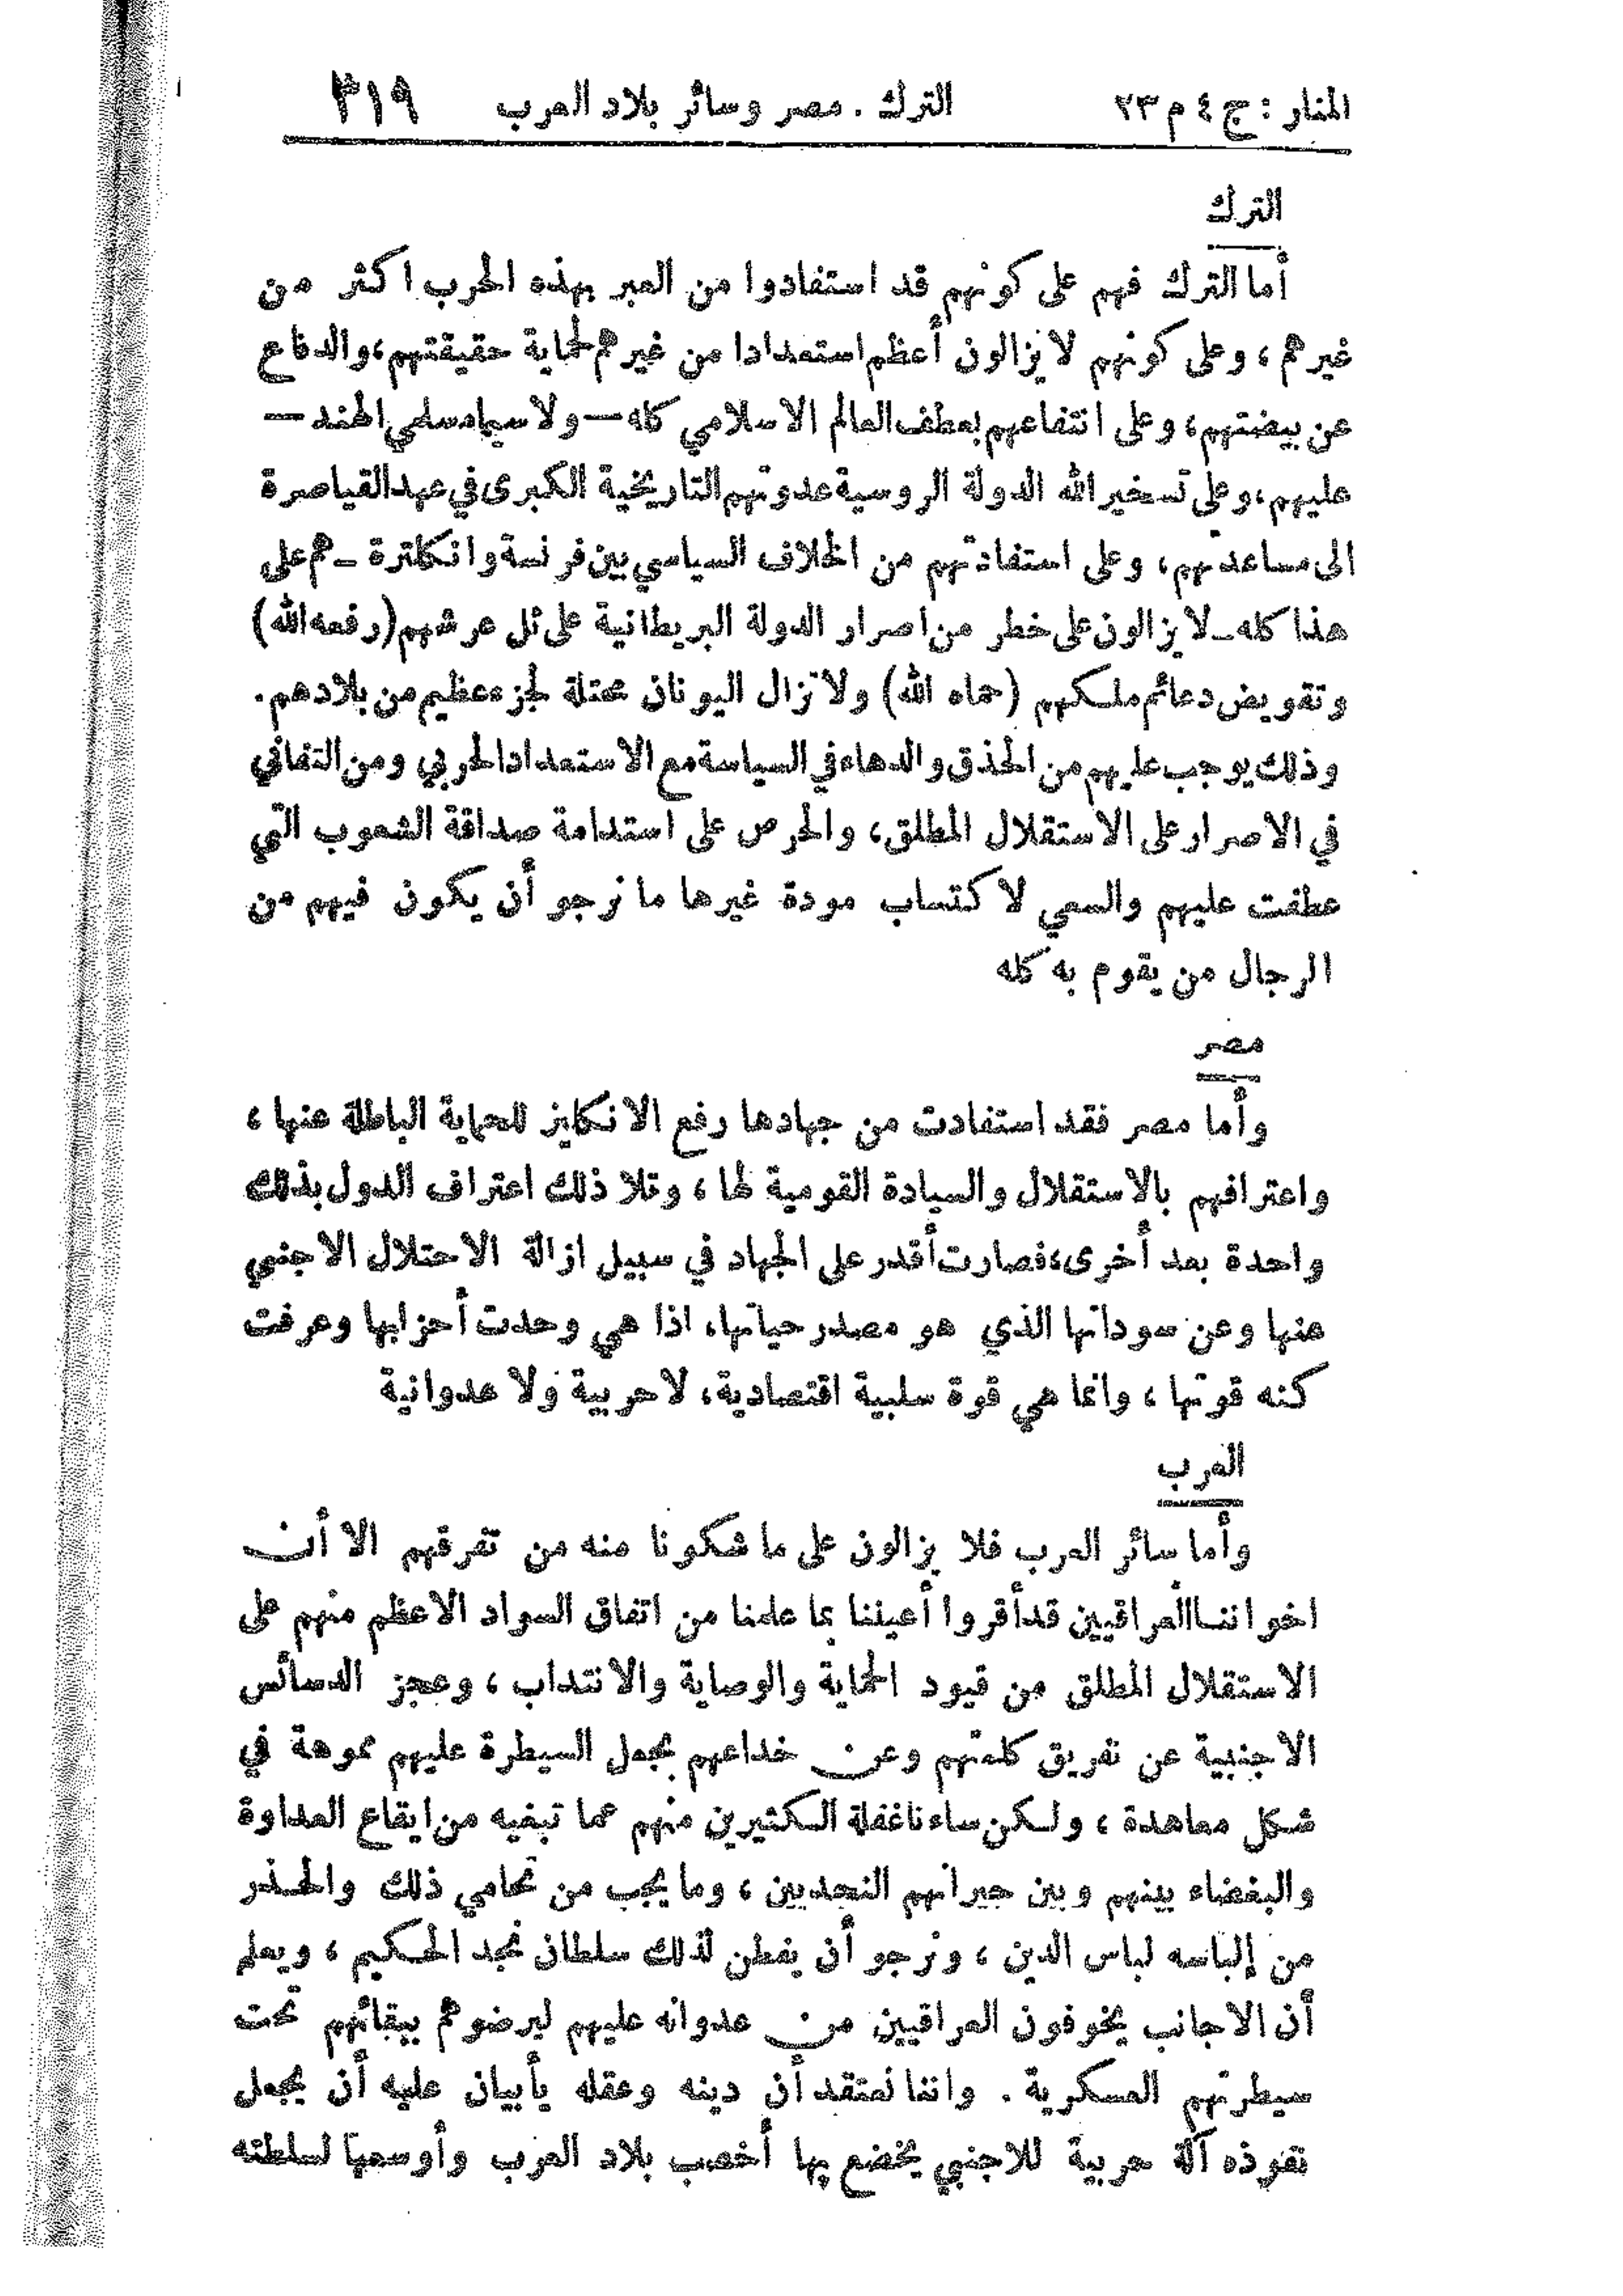 المنار : ج ٤ م ٢٣
الترك . مصر وسائر بلاد العرب
٣١٩
الترك
أما الترك فهم على كونهم قد استفادوا من العبر بهذه الحرب اكثر من
غيرهم ، وعلى كونهم لا يزالون أعظم استعدادا من غيرهم لحماية حقيقتهم، والدفاع
عن بيضتهم، وعلى انتفاعهم بعطف العالم الاسلامي كله — ولا سيما مسلمي الهند —
عليهم، وعلى تسخير الله الدولة الروسية عدوتهم التاريخية الكبرى في عهد القياصرة
الى مساعدتهم، وعلى استفادتهم من الخلاف السياسي بين فرنسة وانكلترة ـ هم على
هذا كله ـ لا يزالون على خطر من اصرار الدولة البريطانية على ثل عرشهم (رفعه الله)
وتقويض دعائم ملكهم (حماه الله) ولا تزال اليونان محتلة لجزء عظيم من بلادهم .
وذلك يوجب عليهم من الحذق والدهاء في السياسة مع الاستعداد الحربي ومن التفاني
في الاصرار على الاستقلال المطلق، والحرص على استدامة صداقة الشعوب التي
عطفت عليهم والسعي لا كتساب مودة غيرها ما نرجو أن يكون فيهم من
الرجال من يقوم به كله
مصر
وأما مصر فقد استفادت من جهادها رفع الانكليز للحماية الباطلة عنها ،
واعترافهم بالاستقلال والسيادة القومية لها ، وتلا ذلك اعتراف الدول بذلك
واحدة بعد أخرى، فصارت أقدر على الجهاد في سبيل ازالة الاحتلال الاجنبي
عنها وعن سودانها الذي هو مصدر حياتها، اذا هي وحدت أحزابها وعرفت
كنه قوتها ، وانما هي قوة سلبية اقتصادية، لا حربية ولا عدوانية
العرب
وأما سائر العرب فلا يزالون على ما شكونا منه من تفرقهم الا أن
اخواننا العراقيين قد أقروا أعيننا بما علمنا من اتفاق السواد الاعظم منهم على
الاستقلال المطلق من قيود الحماية والوصاية والانتداب ، وعجز الدسائس
الاجنبية عن تفريق كلمتهم وعن خداعهم بجعل السيطرة عليهم مموهة في
شكل معاهدة ، ولكن ساءنا غفلة الكثيرين منهم عما تبغيه من ايقاع العداوة
والبغضاء بينهم وبين جيرانهم النجديين ، وما يجب من تحامي ذلك والحذر
من إلباسه لباس الدين ، ونرجو أن يفطن لذلك سلطان نجد الحكيم ، ويعلم
أن الاجانب يخوفون العراقيين من عدوانه عليهم ليرضوهم ببقائهم تحت
سيطرتهم العسكرية . واننا نعتقد أن دينه وعقله يأبيان عليه أن يجعل
نفوذه آلة حربية للاجنبي يخضع بها أخصب بلاد العرب وأوسعها لسلطته